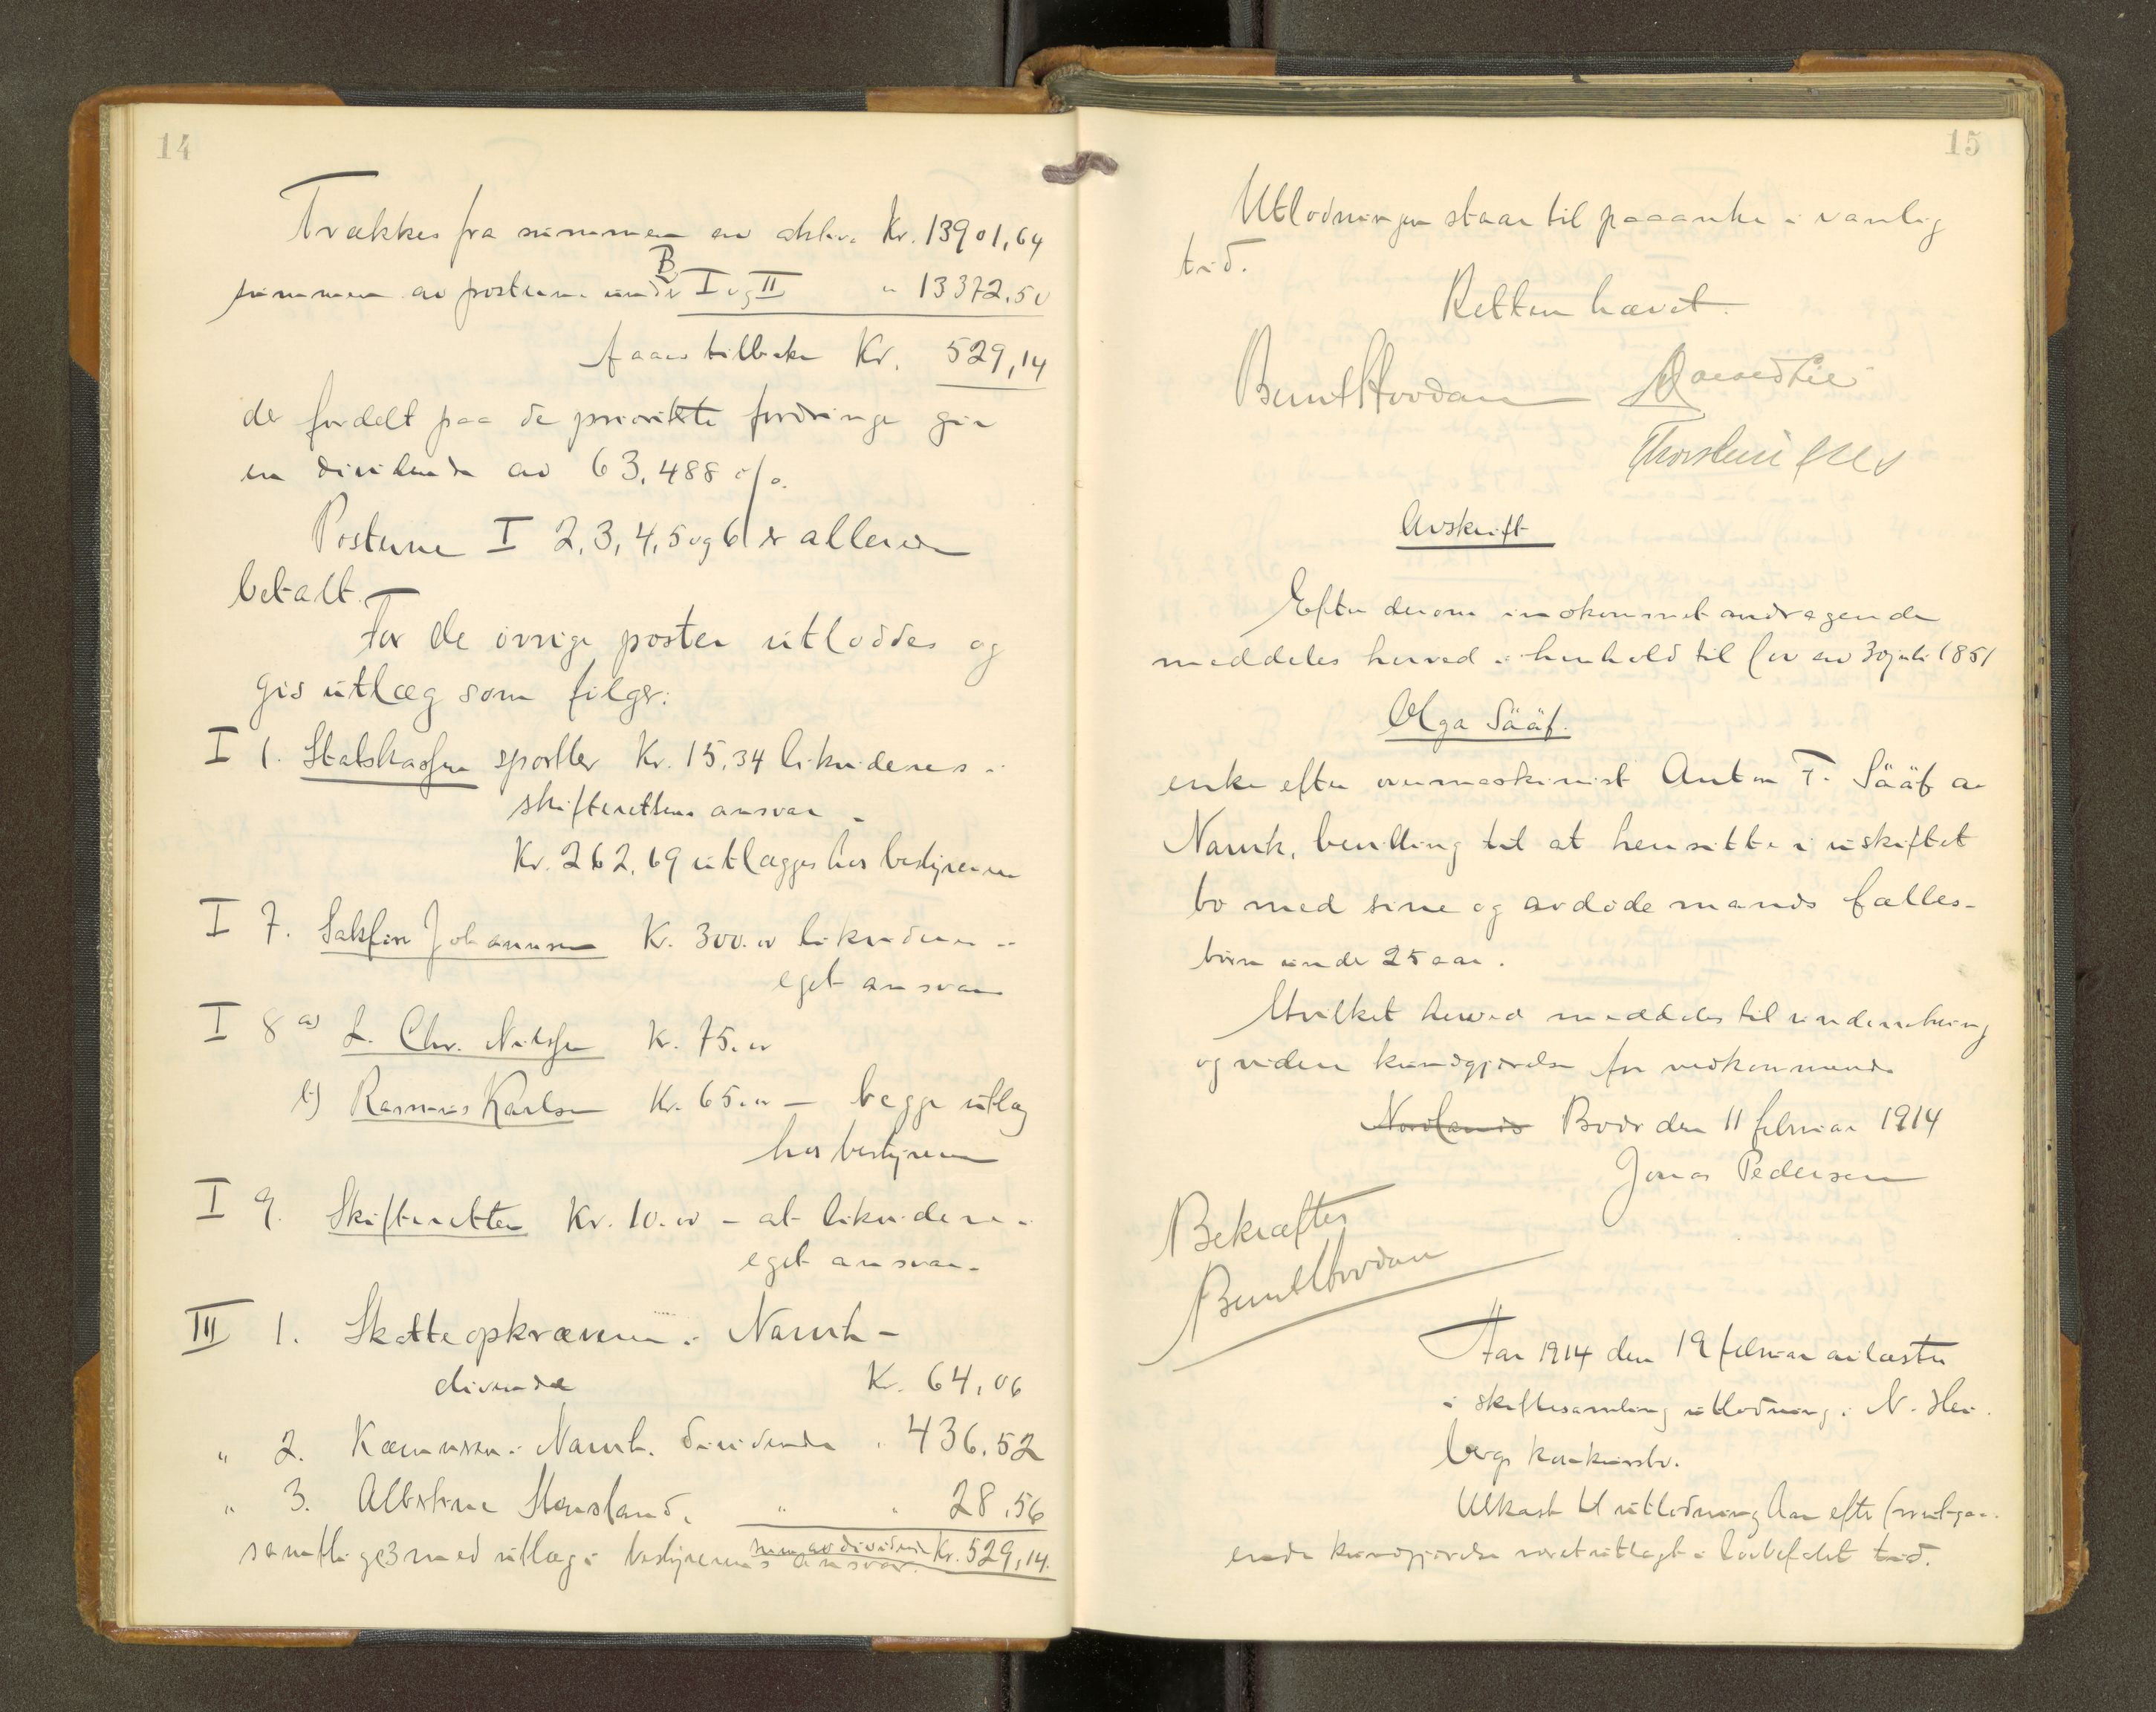 14
Trækkes fra summen av aktiva Kr. 13901,64
summen av posterne under B I og II " 13372,50
faaes tilbake Kr. 529,14
der fordelt paa de prioriterte fordringer gir
en dividende av 63,488 o/o.
Posterne I 2, 3, 4, 5 og 6 er allerede
betalt.
For de øvrige poster utloddes og
gis utlæg som følger:
I 1. Statskassen sportler Kr. 15,34 likvideres i
skifterettens ansvar -
Kr. 262,69 utlægges hos bestyreren
I 7. Sakfører Johannesen Kr. 300.00 likvideres i
eget ansvar
I 8 a) L. Chr. Nilssen Kr. 75.00
b) Rasmus Karlsen Kr. 65.00 - begge utlæg
hos bestyreren
I 9. Skifteretten Kr. 10.00 - at likvidere i
eget ansvar.
III 1. Skatteopkræveren i Narvik -
dividende Kr. 64,06
" 2. Kæmneren i Narvik dividende " 436.52
" 3. Albertine Stensland " " 28,56
sum av dividende Kr. 529,14.
samtlige 3 med utlæg i bestyrerens ansvar.
15
Utlodningen staar til paaanke i vanlig
tid.
Retten hævet.
Bernt Hovdan
Avskrift
Efter derom indkommet andragende
meddeles herved i henhold til lov av 30 juli 1851
Olga Sääf.
enke efter overmaskinist Anton F. Sääf av
Narvik, bevilling til at hensitte i uskiftet
bo med sine og avdøde mands fælles-
børn under 25 aar.
Hvilket herved meddeles til underretning
og videre kundgjørelse for vedkommende
Nordlands Bodø den 11 februar 1914
Jonas Pedersen
Bekræftes
Bernt Hovdan
Aar 1914 den 19 februar avlæstes
i skiftesamling utlodning i N. Hei-
bergs konkursbo.
Utkast til utlodning har efter forutgaa-
ende kundgjørelse været utlagt i lovbefalet tid.